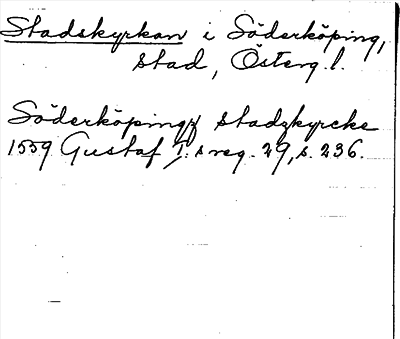 Stadskyrkan i Söderköping,
stad, Österg.l.
Söderköpingz stadzkyrcke
1559 Gustaf I:s reg. 29, s. 236.